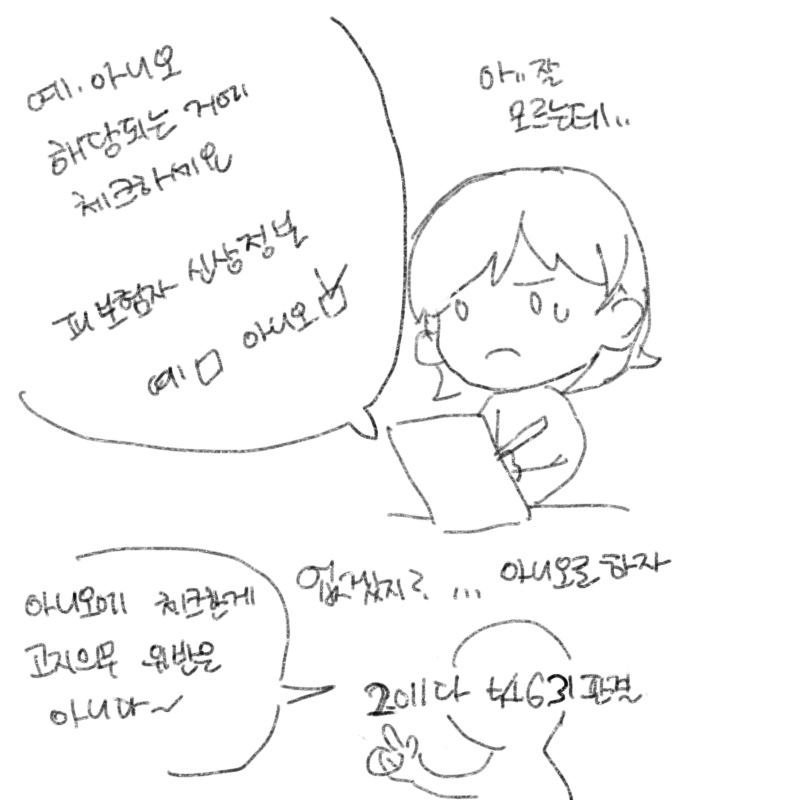 예. 아니오
해당되는 거에
체크하세요
피보험자 신상정보
예□ 아니오☑
아.. 잘
모르는데..
없겠지?... 아니오로 하자
아니오에 체크한게
고지의무 위반은
아니다~
2011다54631판결